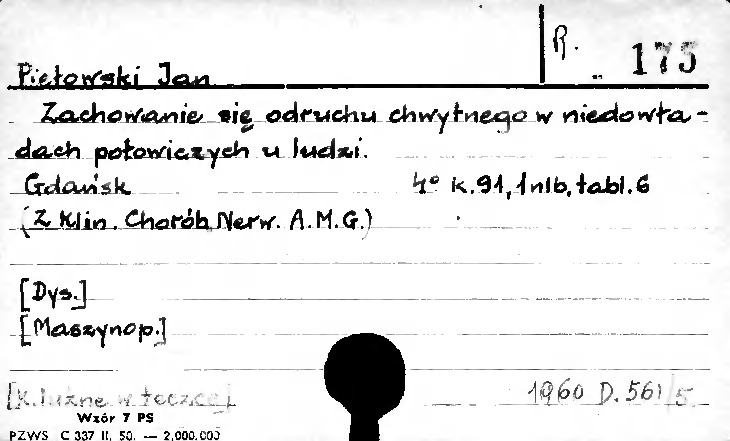 R. 175
Pietowski Jan
Zachowanie się odruchu chwytnego w niedowła-
dach połowiczych u ludzi.
Gdańsk 4° k. 91, 1 nlb, tabl. 6
(Z Klin. Chorób Nerw. A.M.G.)
[Dys.]
[Maszynop.]
[K. luźne w teczce]
1960 D. 561/5
Wzór 7 PS
PZWS C 337 II. 50. — 2,000.000